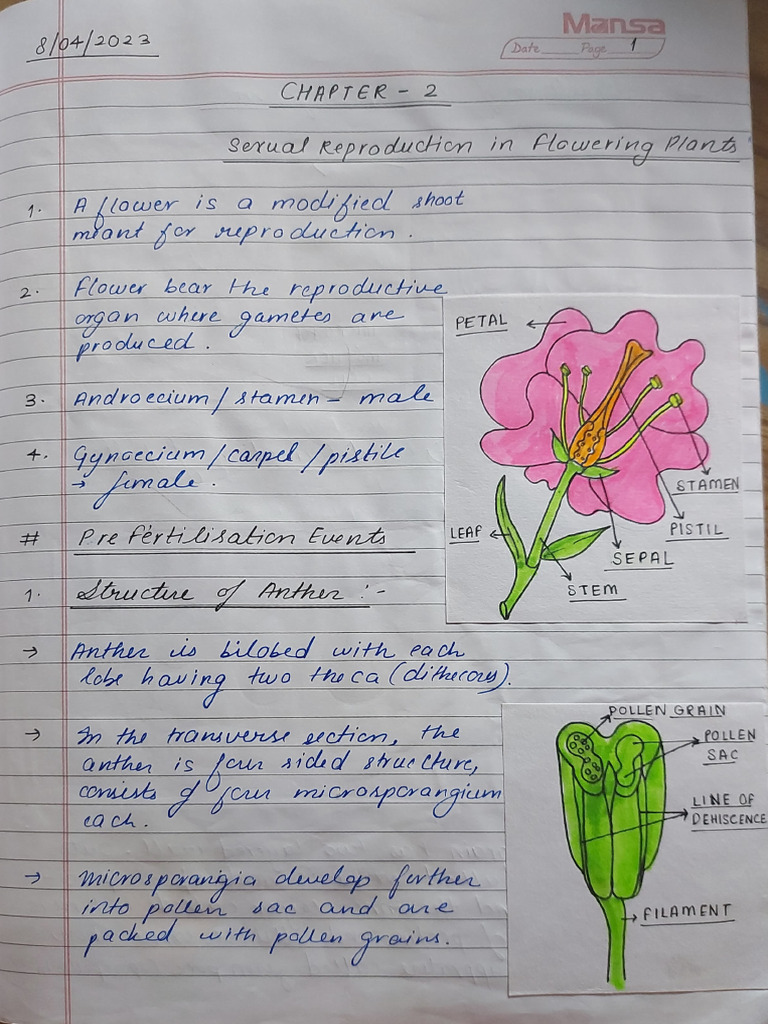 8/04/2023
Mansa
Date Page 1
CHAPTER - 2
Sexual Reproduction in Flowering Plants
1. A flower is a modified shoot
meant for reproduction.
2. Flower bear the reproductive
organ where gametes are
produced.
3. Androecium/stamen - male
4. Gynoecium/carpel/pistile
→ female.
PETAL
STAMEN
PISTIL
SEPAL
LEAF
STEM
# Pre Fertilisation Events
1. Structure of Anther :-
→ Anther is bilobed with each
lobe having two theca (dithecous).
→ In the transverse section, the
anther is four sided structure,
consists of four microsporangium
each.
→ Microsporangia develop further
into pollen sac and are
packed with pollen grains.
POLLEN GRAIN
POLLEN
SAC
LINE OF
DEHISCENCE
FILAMENT